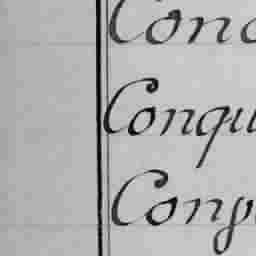 Conc
Conqu
Conp